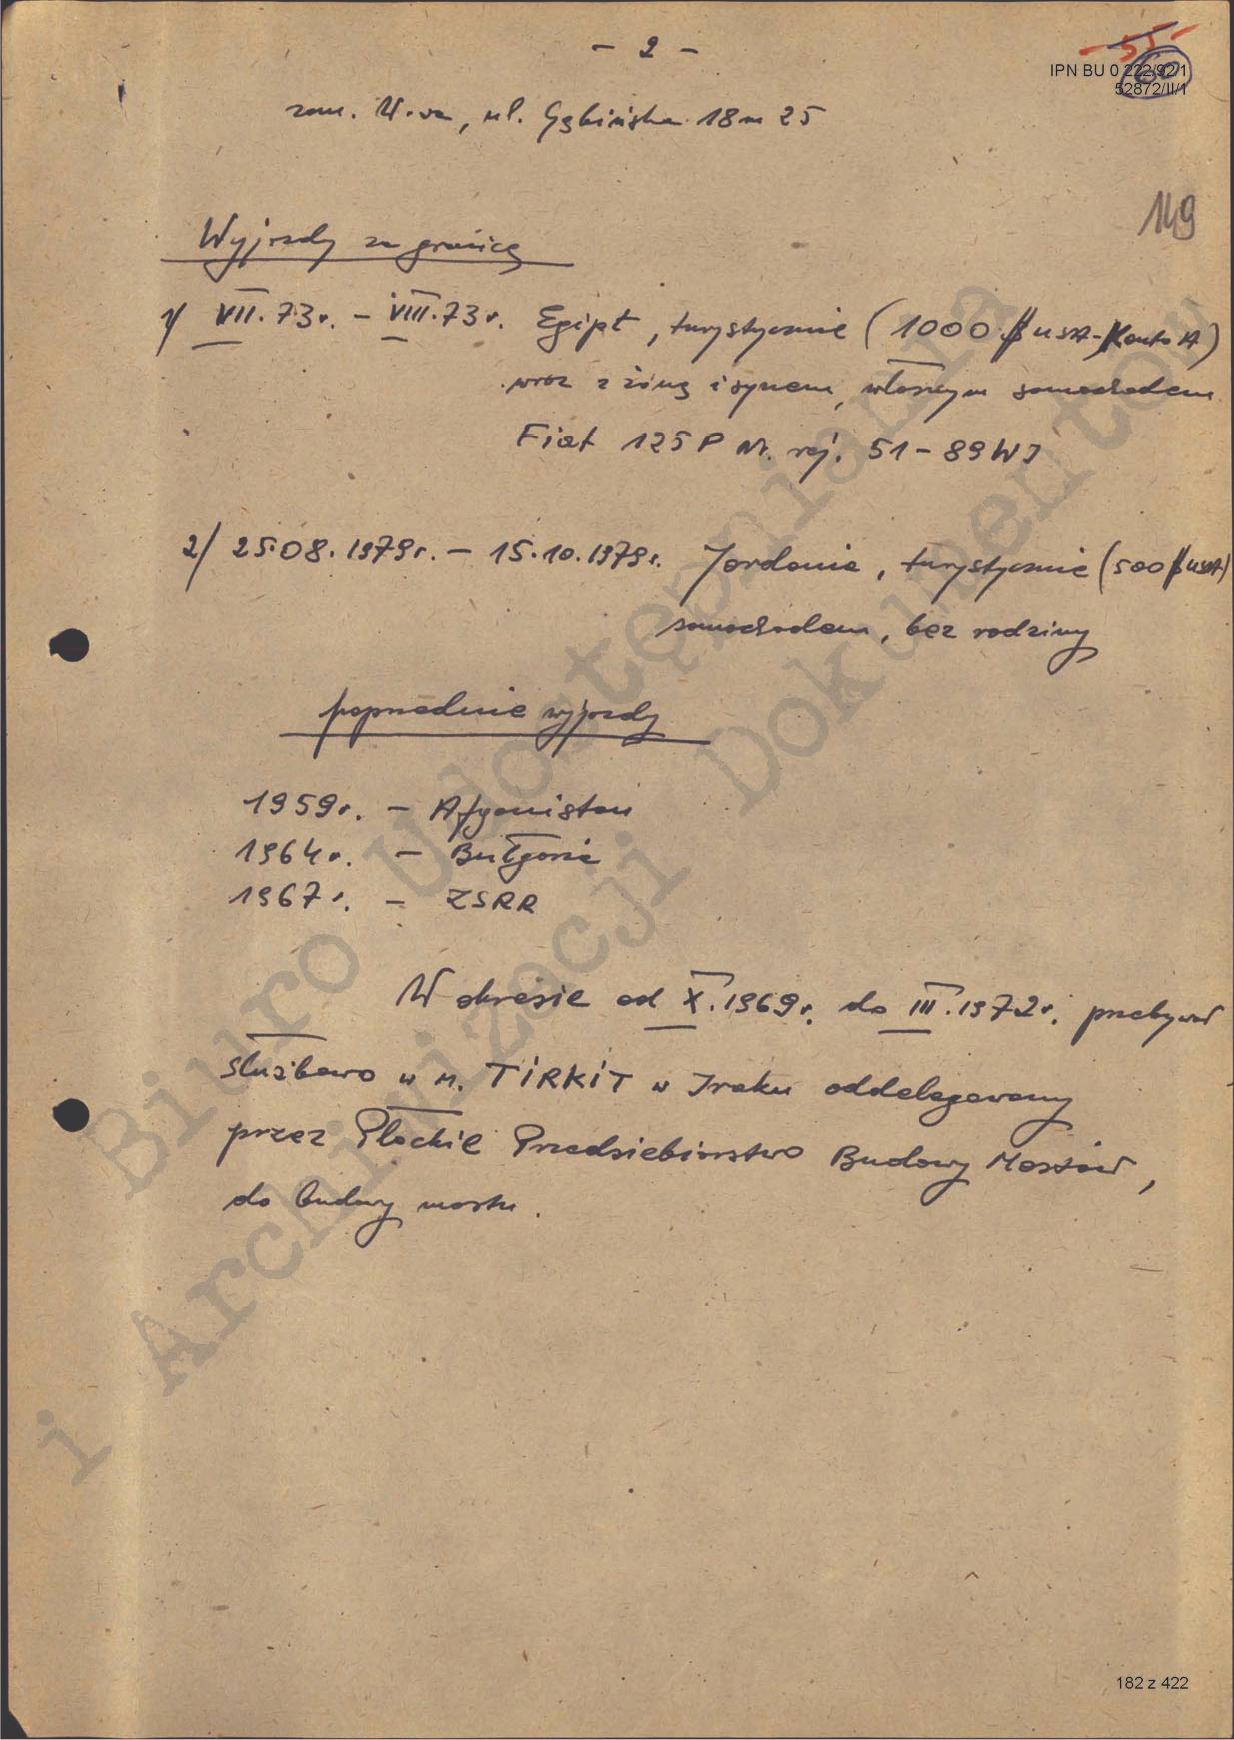 - 2 -
- 55 -
60
IPN BU 0 222/92/1
52872/II/1
zam. W-wa, ul. Gąbińska 18 m 25
149
Wyjazdy za granicę
1/ VII.73r. - VIII.73r. Egipt, turystycznie (1000 $ USA - Konto A)
wraz z żoną i synem, własnym samochodem
Fiat 125P Nr. rej. 51-89 WJ
2/ 25.08.1979r. - 15.10.1979r. Jordania, turystycznie (500 $ USA)
samochodem, bez rodziny
poprzednie wyjazdy
1959r. - Afganistan
1964r. - Bułgaria
1967r. - ZSRR
W okresie od X.1969r. do III.1972r. przebywał
służbowo w m. TIRKIT w Iraku oddelegowany
przez Płockie Przedsiębiorstwo Budowy Mostów,
do budowy mostu.
Biuro Udostępniania
i Archiwizacji Dokumentów
182 z 422